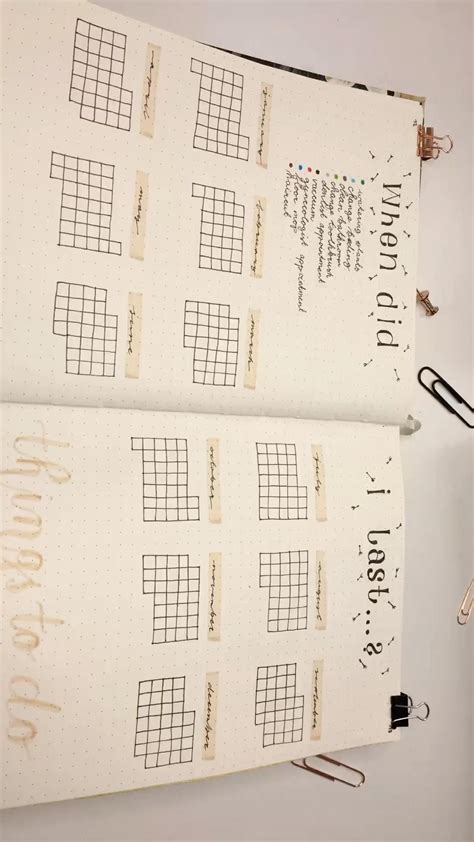 When did
watering plants
change bedding
clean bathroom
change toothbrush
dentist appointment
vacuum
gynecologist appointment
floor mop
haircut
january
february
march
april
may
june
i last...?
july
august
october
november
december
things to do